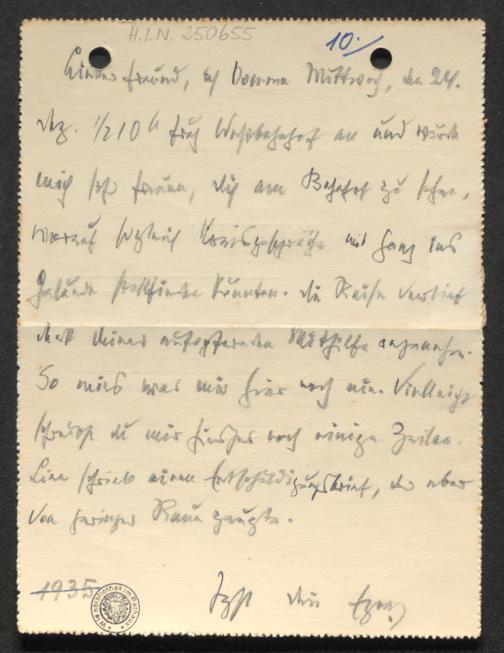 H.I.N. 250655
10.
Lieber Freund, ich komme Mittwoch, den 24.
Dez. 1/2 10 h früh Westbahnhof an und würde
mich sehr freuen, dich am Bahnhof zu sehen,
worauf sogleich mit Gang ins
Gelände stattfinden könnten. Die Reise verlief
dank deiner aufopfernden Mithilfe angenehm.
So mies war mir hier noch nie. Vielleicht
schreibst du mir hierher noch einige Zeilen.
schrieb einen Entschuldigungsbrief, der aber
von geringer Reue zeugte.
1935 dein
Wienbibliothek im Rathaus